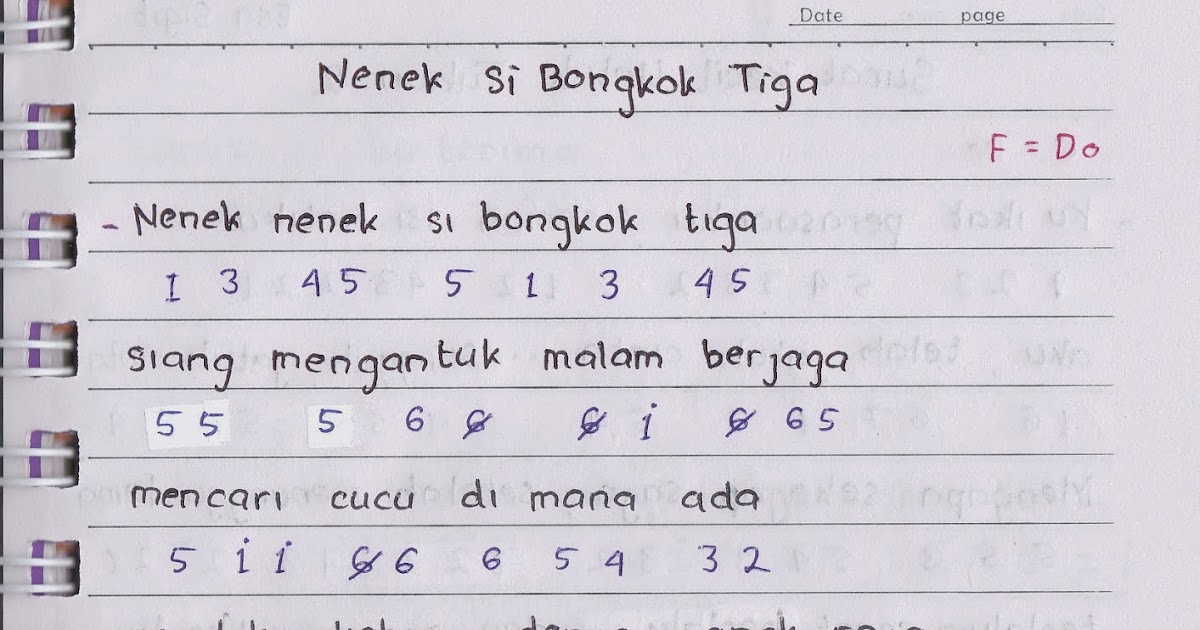 Date page
Nenek Si Bongkok Tiga
F = Do
- Nenek nenek si bongkok tiga
1 3 4 5 5 1 3 4 5
siang mengantuk malam berjaga
5 5 5 6 6̸ 6̸ i 6̸ 6 5
mencari cucu di mana ada
5 i i 6̸ 6 6 5 4 3 2